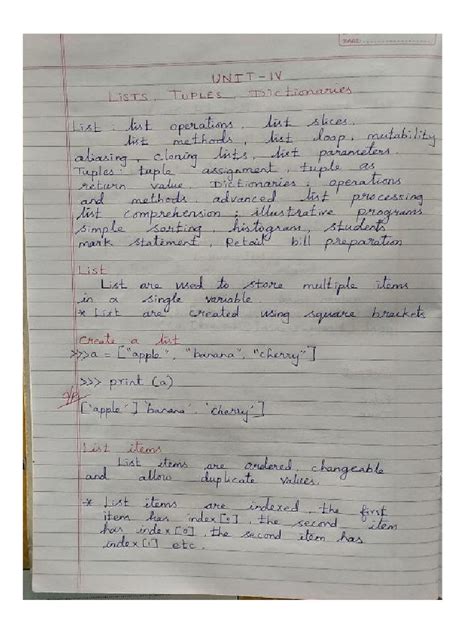 PAGE:
UNIT-IV
LISTS, TUPLES, Dictionaries
List : list operations, list slices,
list methods, list loop, mutability
aliasing, cloning lists, list parameters
Tuples: tuple assignment, tuple as
return value. Dictionaries: operations
and methods, advanced list processing
list comprehension; illustrative programs
simple sorting, histogram, students
mark statement, Retail bill preparation
List
List are used to store multiple items
in a single variable.
* List are created using square brackets
Create a list
>>>a = ["apple", "banana", "cherry"]
>>> print (a)
["apple"] "banana". "cherry"]
List items
List items are ordered, changeable
and allow duplicate values.
* List items are indexed, the first
item has index[0], the second item
has index[0], the second item has
index[1] etc.